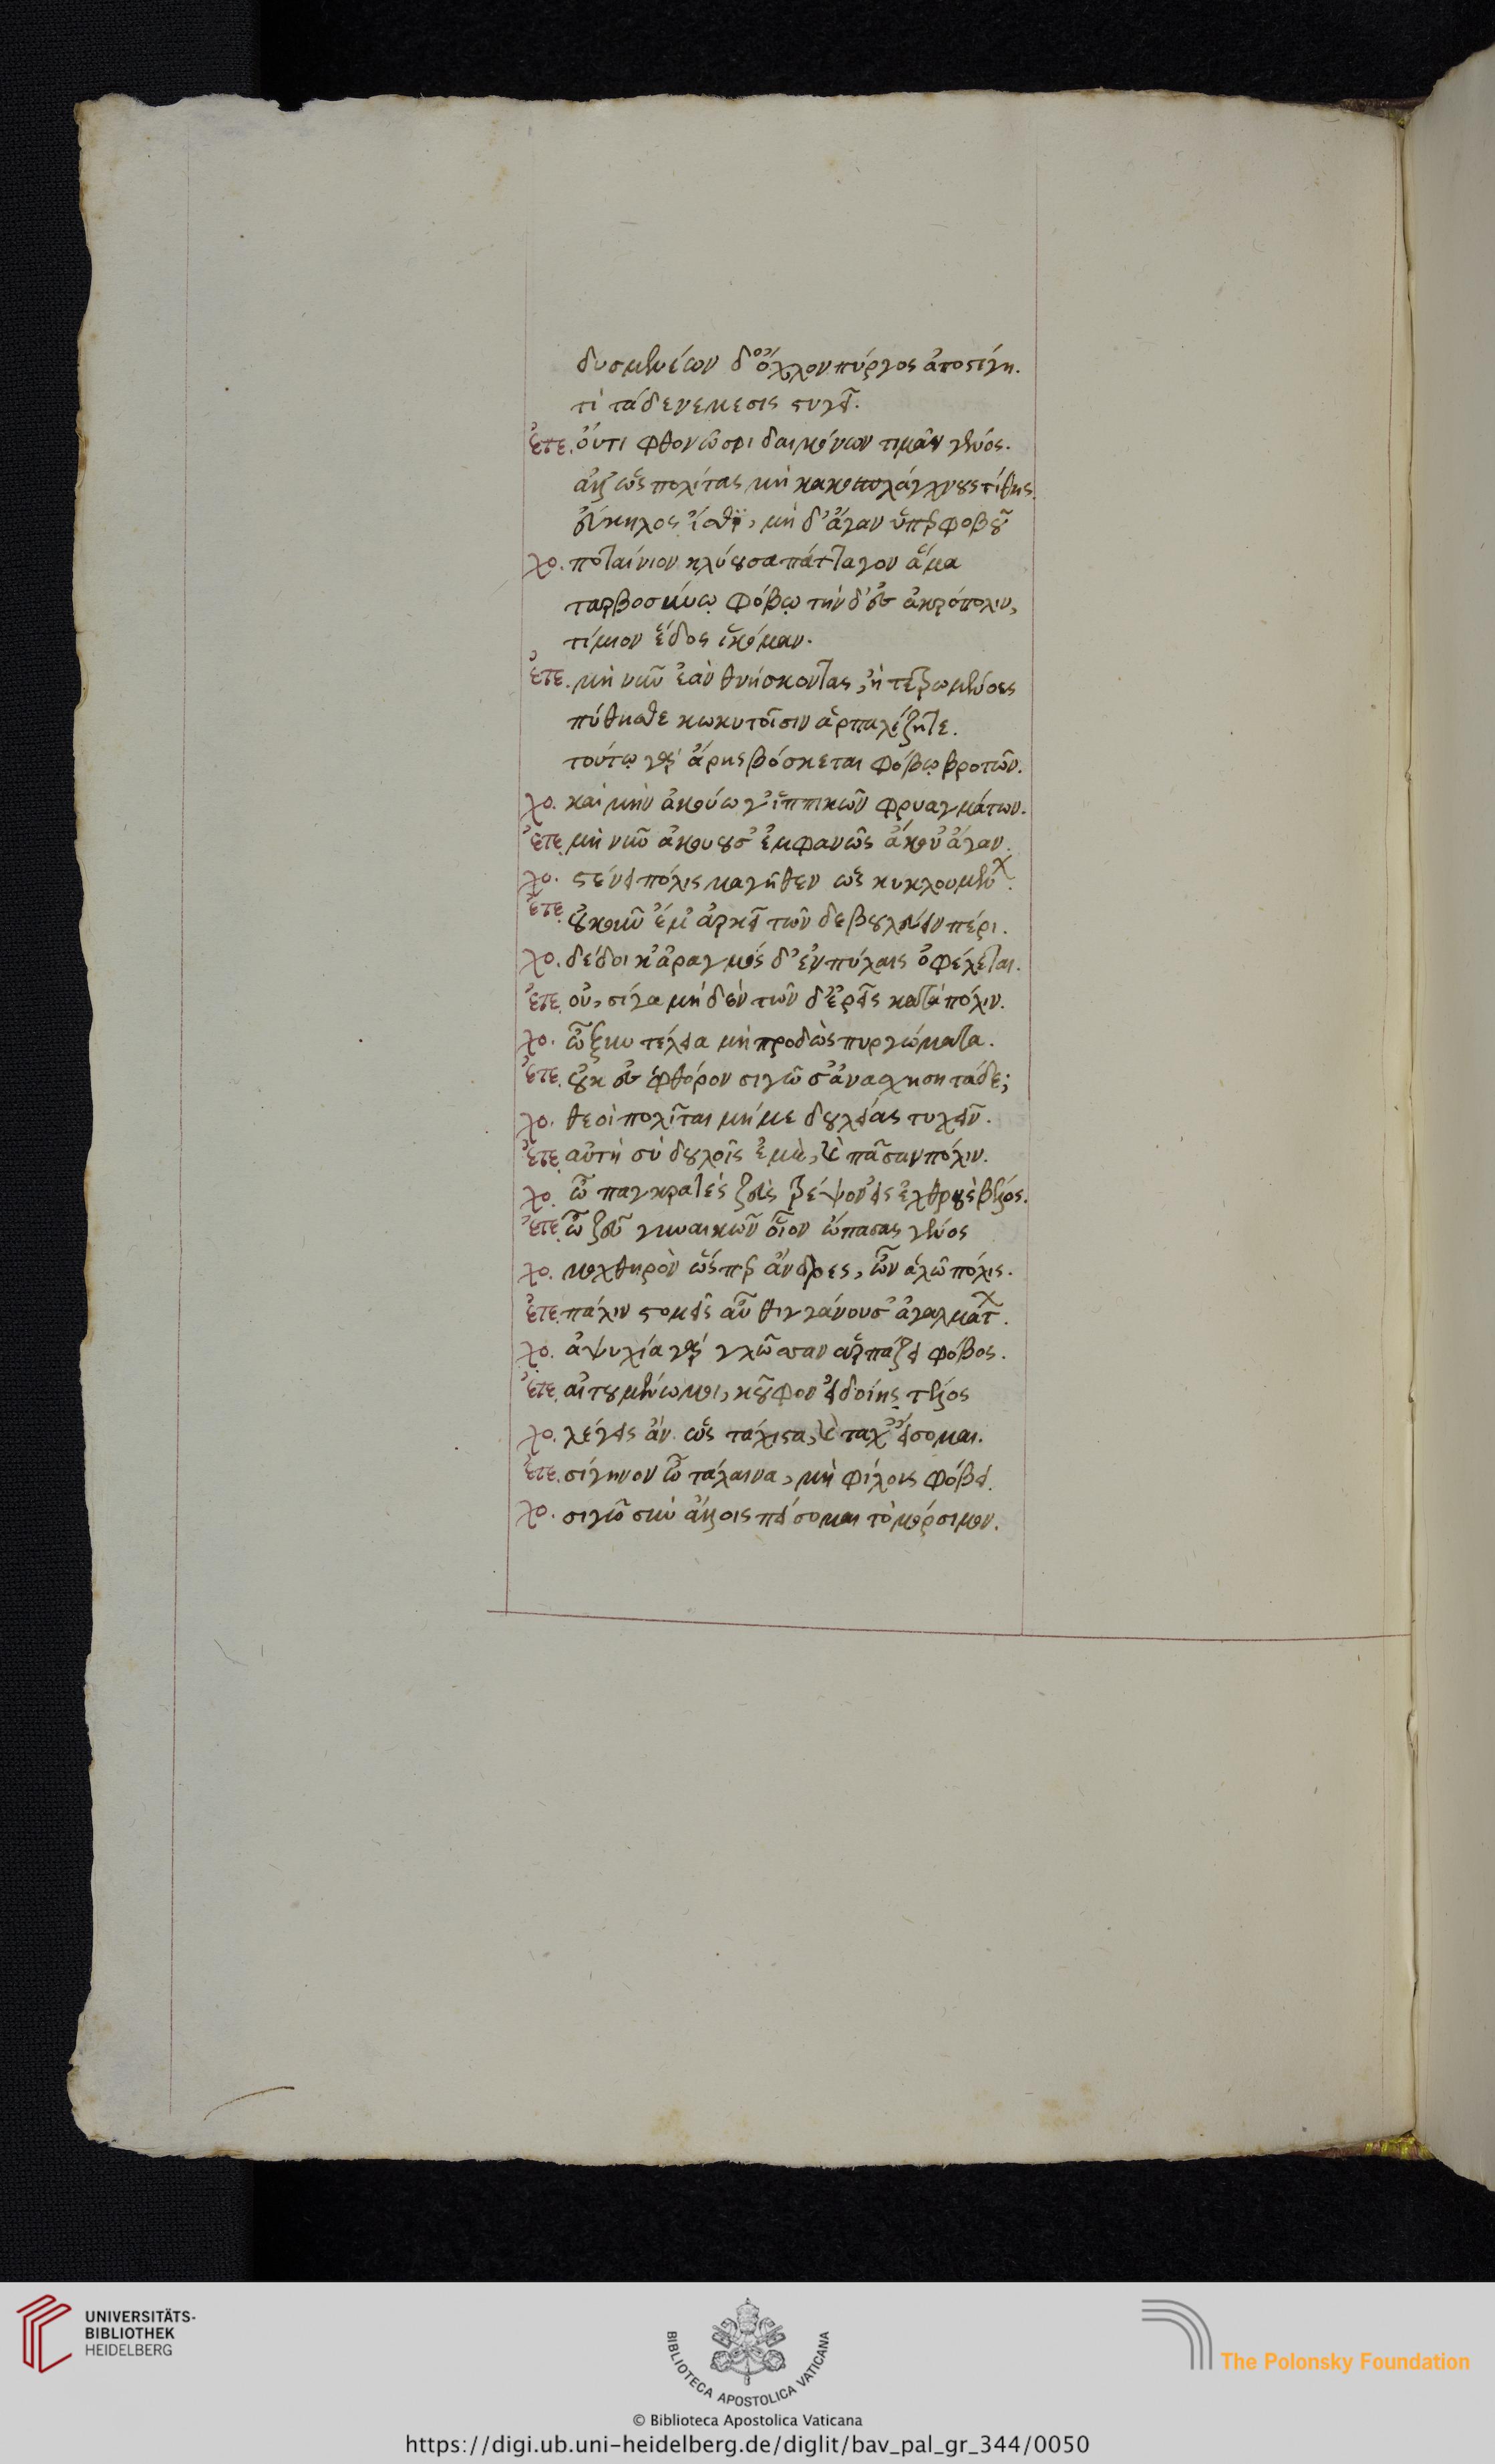 δυσμενέων δ' ὄχλον πύργος ἀποστέγη.
τί τάδε νέμεσις στυγεῖ.
ἐτε. οὔτι φθονῶ σοι δαιμόνων τιμᾶν γένος.
ἀλλ' ὡς πολίτας μὴ κακοσπλάγχνους τίθης.
εὔκηλος ἴσθι, μὴ δ' ἄγαν ὑπερφοβοῦ
χο. ποταίνιον κλύουσα πάταγον ἅμα
ταρβοσύνω φόβω τήνδ' ἐς ἀκρόπολιν,
τίμιον ἕδος ἱκόμαν.
ἐτε. μὴ νῦν ἐὰν θνήσκοντας, ἢ τετρωμένους
πύθησθε κωκυτοῖσιν ἁρπαλίζητε.
τούτω γὰρ ἄρης βόσκεται φόβω βροτῶν.
χο. καὶ μὴν ἀκούω γ' ἱππικῶν φρυαγμάτων.
ἐτε. μὴ νῦν ἀκούουσ' ἐμφανῶς ἄκου' ἄγαν.
χο. στένει πόλισμα γῆθεν ὡς κυκλουμένων.
ἐτε. οὐκοῦν ἔμ' ἀρκεῖ τῶνδε βουλεύειν πέρι.
χο. δέδοικ' ἀραγμὸς δ' ἐν πύλαις ὀφέλεται.
ἐτε. οὐ, σίγα μηδὲν τῶν δ' ἐρεῖς κατὰ πόλιν.
χο. ὦ ξυντέλεια μὴ προδῶς πυργώματα.
ἐτε. οὐκ ἐς φθόρον σιγῶσ' ἀνασχήση τάδε;
χο. θεοὶ πολῖται μή με δουλείας τυχεῖν.
ἐτε. αὐτὴ σὺ δουλοῖς ἐμὲ, καὶ πᾶσαν πόλιν.
χο. ὦ παγκρατὲς ζεὺς τρέψον εἰς ἐχθροὺς βέλος.
ἐτε. ὦ ζεῦ γυναικῶν οἷον ὤπασας γένος
χο. μοχθηρὸν ὥσπερ ἄνδρες, ὧν ἁλῶ πόλις.
ἐτε. πάλιν στομεῖς αὖ θιγγάνουσ' ἀγαλμάτων.
χο. ἀψυχία γὰρ γλῶσσαν ἁρπάζει φόβος.
ἐτε. αἰτουμένω μοι, κοῦφον εἰ δοίης τέλος
χο. λέγεις ἂν ὡς τάχιστα, καὶ τάχ' εἴσομαι.
ἐτε. σίγησον ὦ τάλαινα, μὴ φίλους φόβει.
χο. σιγῶ σὺν ἄλλοις πείσομαι τὸ μόρσιμον.
UNIVERSITÄTS-
BIBLIOTHEK
HEIDELBERG
BIBLIOTECA APOSTOLICA VATICANA
The Polonsky Foundation
© Biblioteca Apostolica Vaticana
https://digi.ub.uni-heidelberg.de/diglit/bav_pal_gr_344/0050